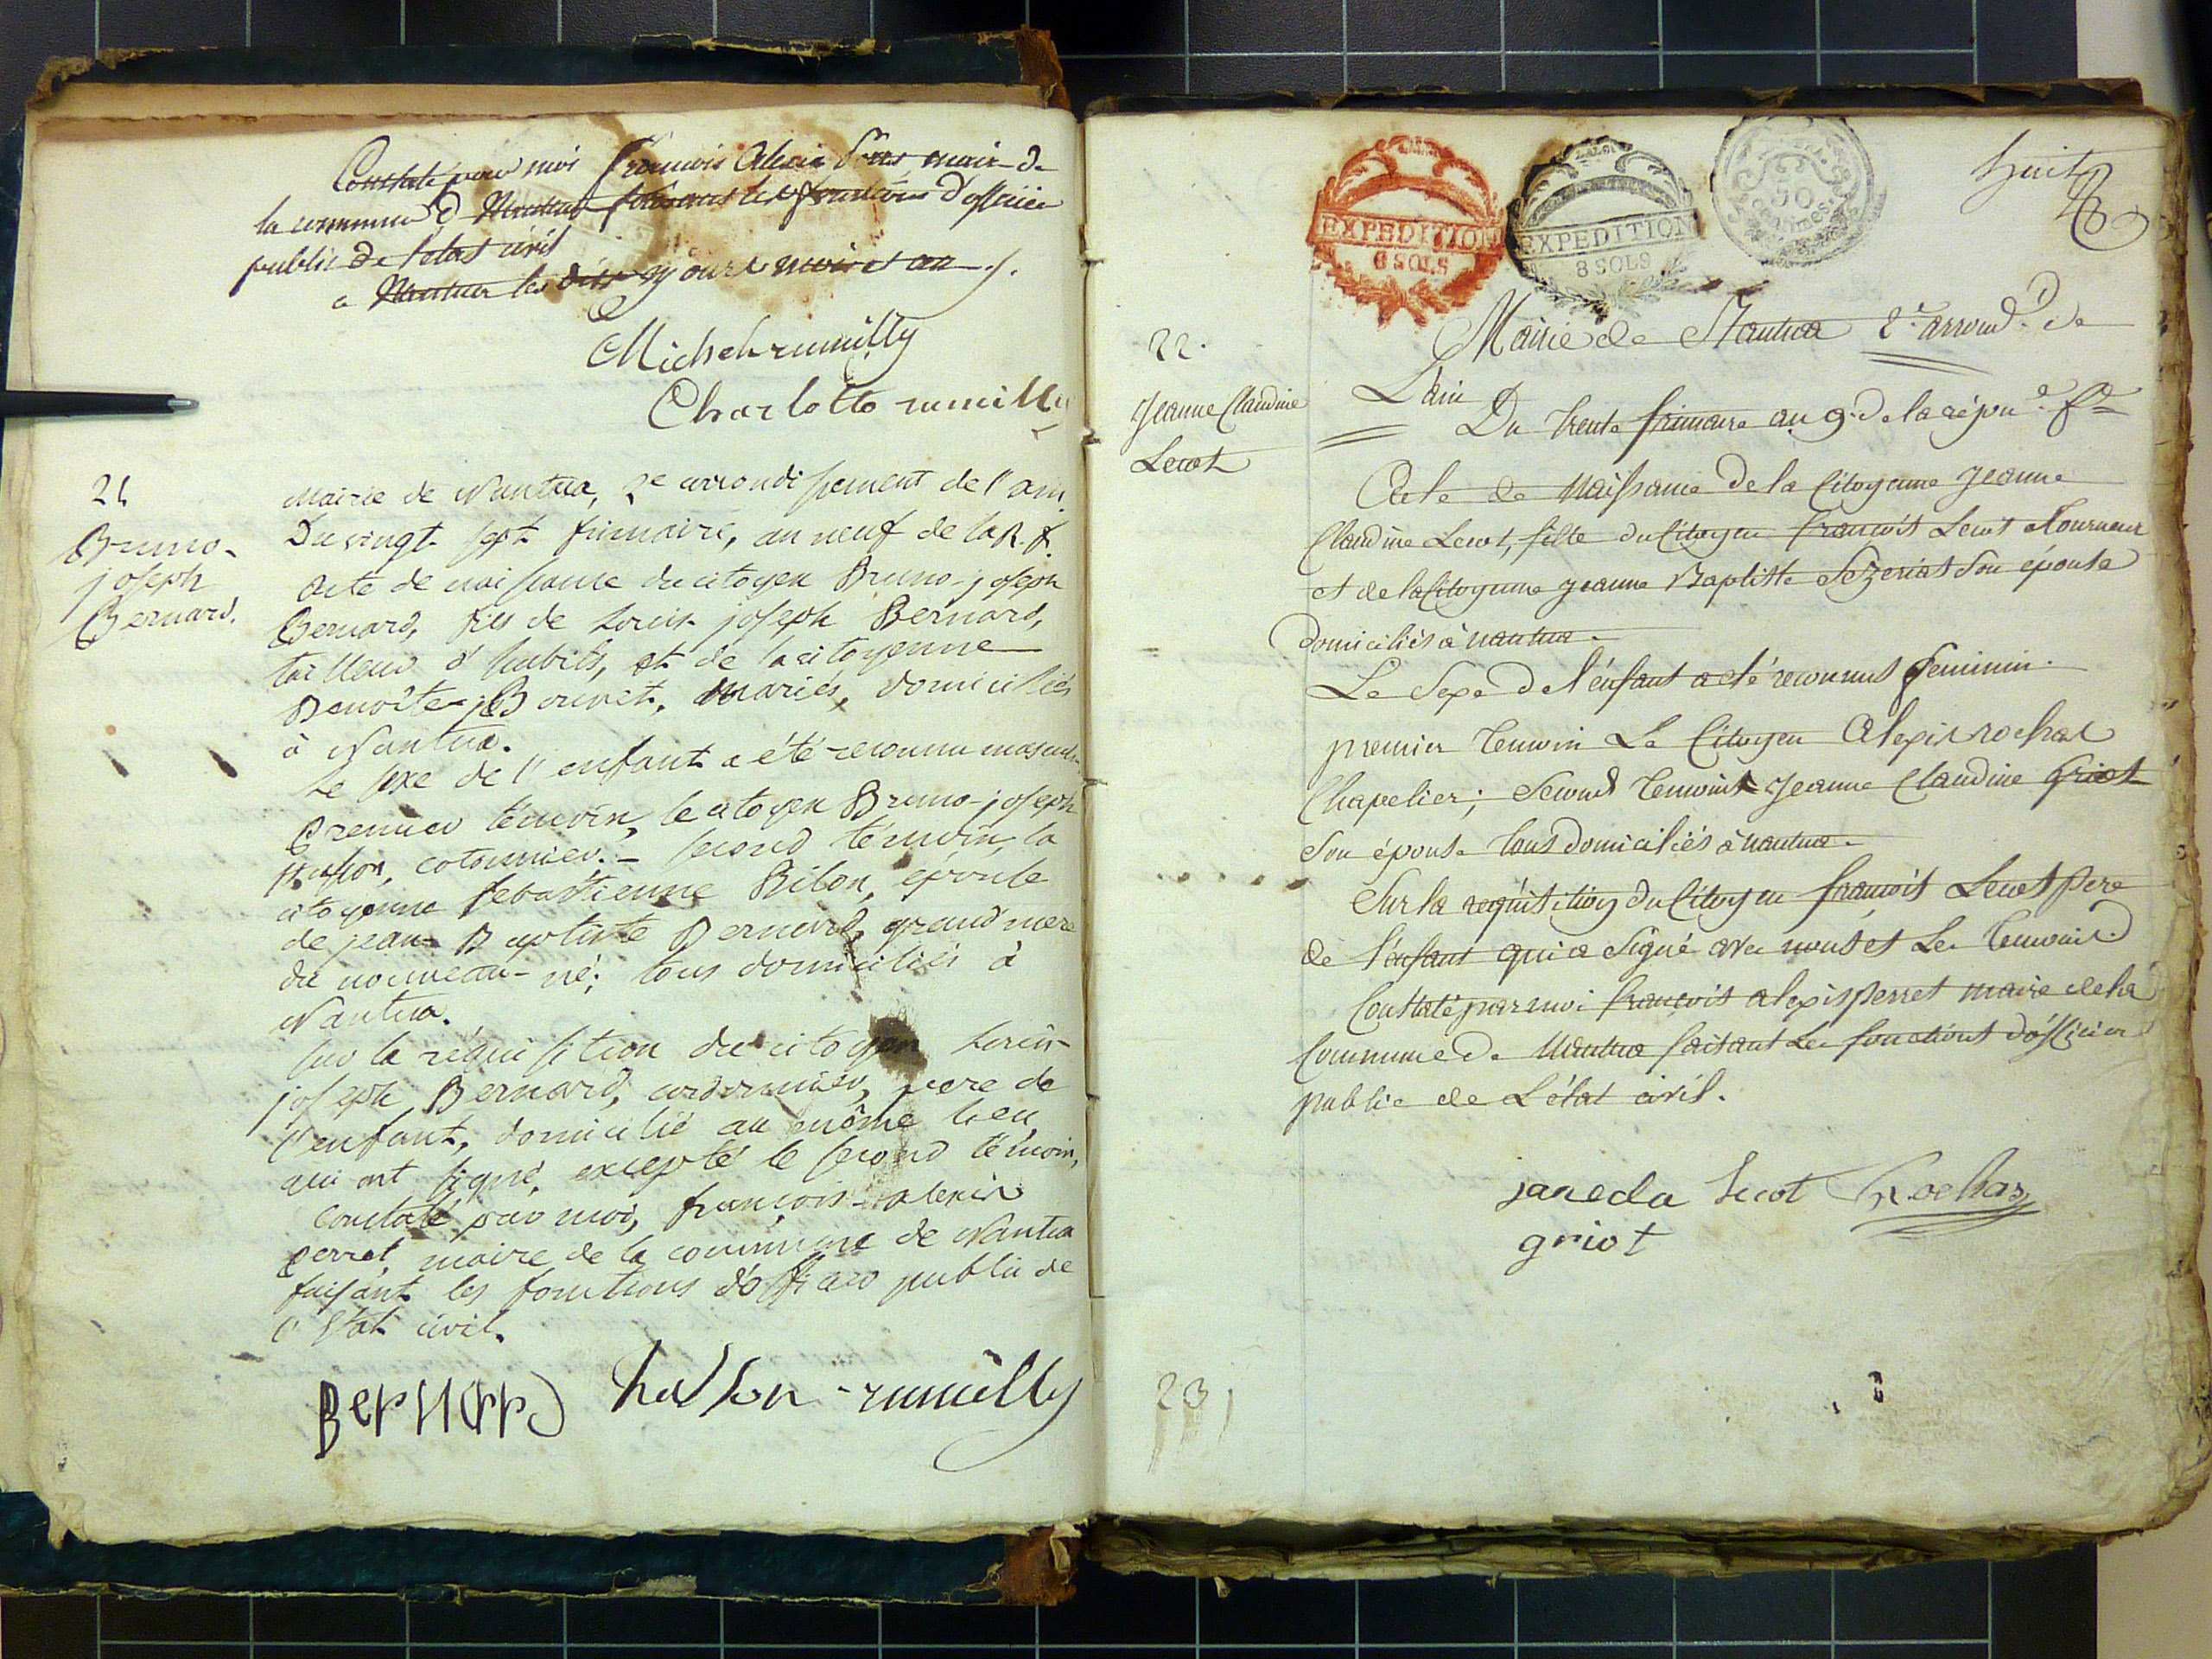 Constaté par moi François Alexis maire de
la commune d Nantua faisant les fonctions d'officier
public de l'etat civil
a Nantua les dits jours mois et an
Michel rumilly
Charlotte rumilly
21
Bruno-
joseph
Bernard.
Mairie de Nantua, 2e arrondissement de l'ain
Du vingt sept frimaire, an neuf de la R. f.
Acte de naissance du citoyen Bruno-joseph
Bernard, fils de Louis joseph Bernard,
tailleur d'habits, et de la citoyenne
Benoite Bouvet, mariés, domiciliés
à Nantua.
Le sexe de l'enfant a été reconnu masculin
Premier témoin, le citoyen Bruno-joseph
husson, cotonnier. - second témoin, la
citoyenne sebastienne Bilon, épouse
de jean-Baptiste Bernard, grand'mere
du nouveau-né; tous domiciliés à
Nantua.
Sur la réquisition du citoyen Louis-
joseph Bernard, cordonnier, pere de
l'enfant, domicilié au même lieu,
qui ont signé, excepté le second témoin,
Constaté par moi, françois-alexis
perret, maire de la commune de Nantua
faisant les fonctions d'officier public de
l'état civil.
Bernard husson rumilly
huit
8
EXPEDITION
8 SOLS
EXPEDITION
8 SOLS
50
centimes
22.
Jeanne Claudine
Lecot
Mairie de Nantua 2e. arrond.t de
L'ain
Du trente frimaire an 9. de la répu.e f.e
Acte de Naissance de la Citoyenne Jeanne
Claudine Lecot, fille du Citoyen François Lecot Tourneur
et de la Citoyenne Jeanne Baptiste Sezeriat Son épouse
domiciliés à nantua.
Le Sexe de l'enfant a été reconnut féminin.
premier temoin Le Citoyen Alexis rochas
Chapelier; Second temoins Jeanne Claudine Griot
Son épouse tous domiciliés à nantua.
Sur la requisition du Citoyen françois Lecot pere
de l'enfant qui a Signé avec nous et Les temoins.
Constaté par moi françois alexis perret maire de la
Commune de Nantua faisant Les fonctions d'officier
public de L'état civil.
Lecot Rochas
griot
23